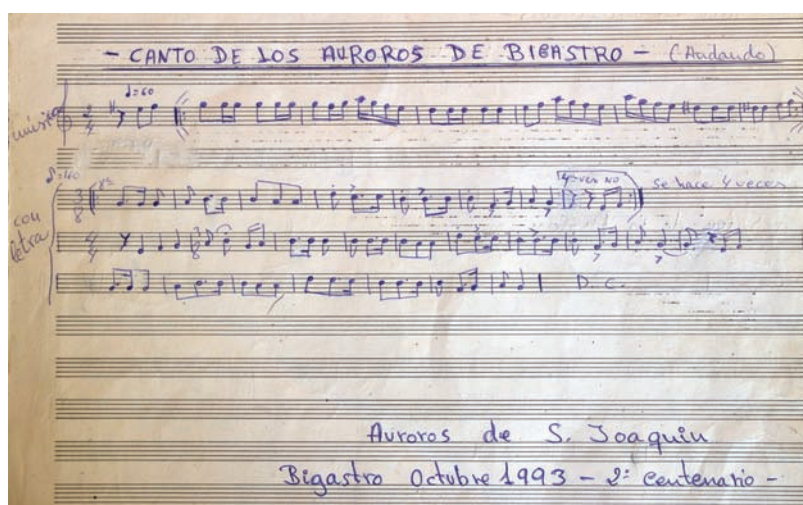 - CANTO DE LOS AUROROS DE BIGASTRO - (Andando)
♩=60
música
2/4
♪=140
4ª vez NO
se hace 4 veces
con
letra
3/8
4/4
3/8
D.C.
Auroros de S. Joaquin
Bigastro Octubre 1993 - 2º Centenario -